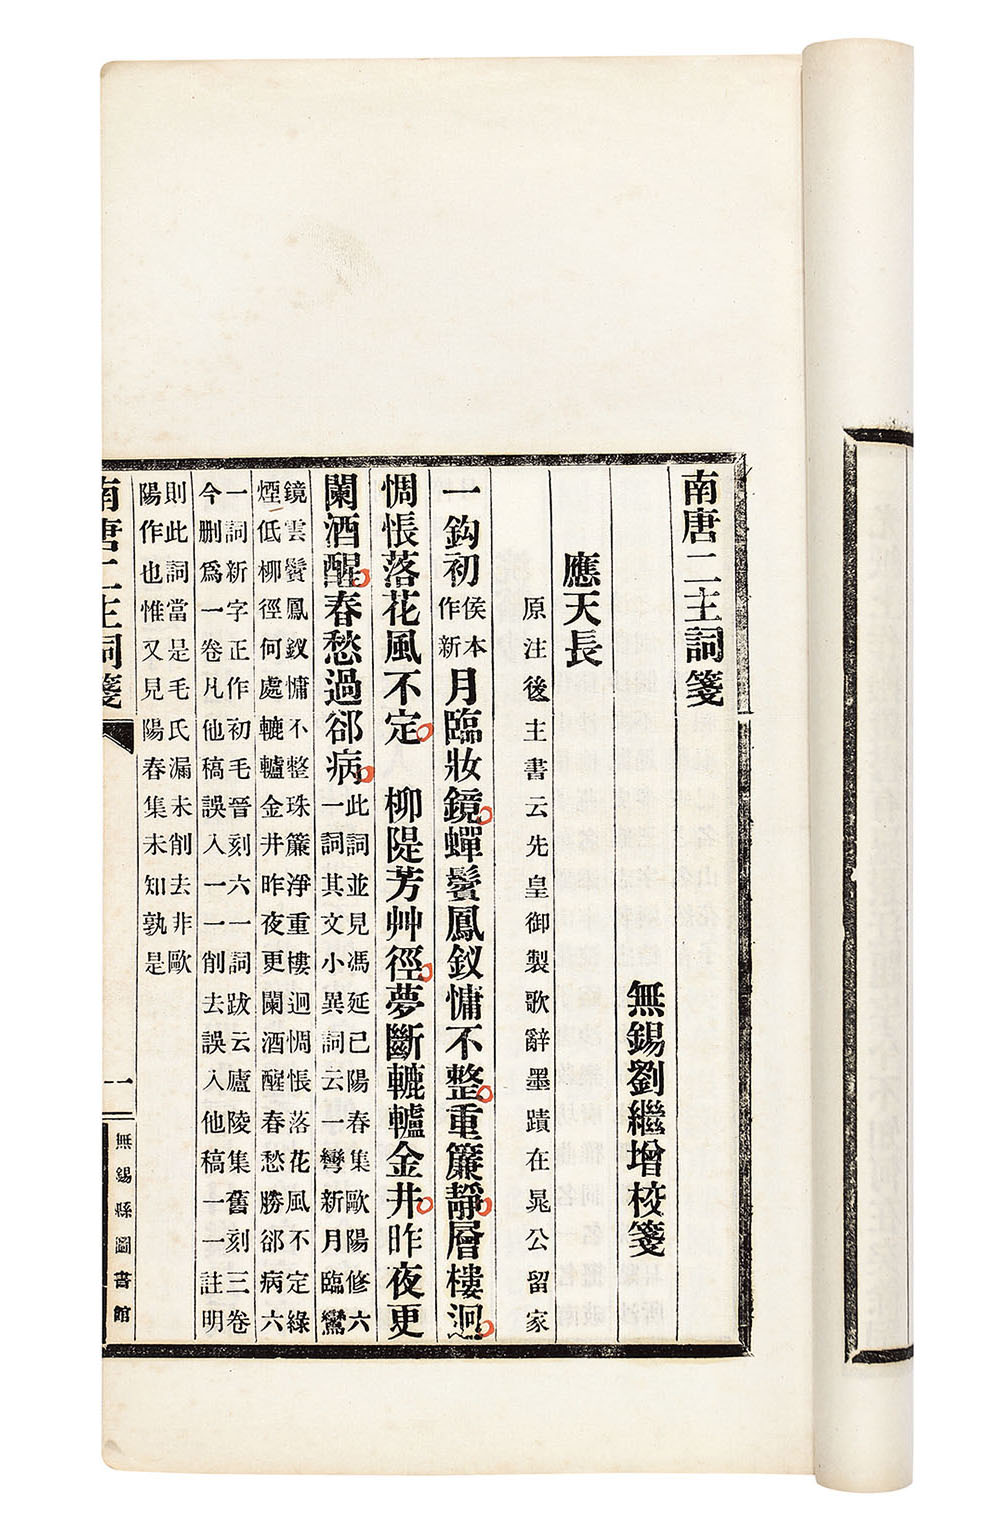 南唐二主詞箋
無錫劉繼增校箋
應天長
原注後主書云先皇御製歌辭墨蹟在晁公留家
一鈎初侯本作新月臨妝鏡蟬鬢鳳釵慵不整重簾靜層樓迥
惆悵落花風不定 柳隄芳艸徑夢斷轆轤金井昨夜更
闌酒醒春愁過郤病此詞並見馮延己陽春集歐陽修六
一詞其文小異詞云一彎新月臨鸞
鏡雲鬢鳳釵慵不整珠簾淨重樓迥惆悵落花風不定綠
煙低柳徑何處轆轤金井昨夜更闌酒醒春愁勝郤病六
一詞新字正作初毛晉刻六一詞跋云廬陵集舊刻三卷
今刪爲一卷凡他稿誤入一一削去誤入他稿一一註明
則此詞當是毛氏漏未削去非歐
陽作也惟又見陽春集未知孰是
南唐二主詞箋
一
無錫縣圖書館